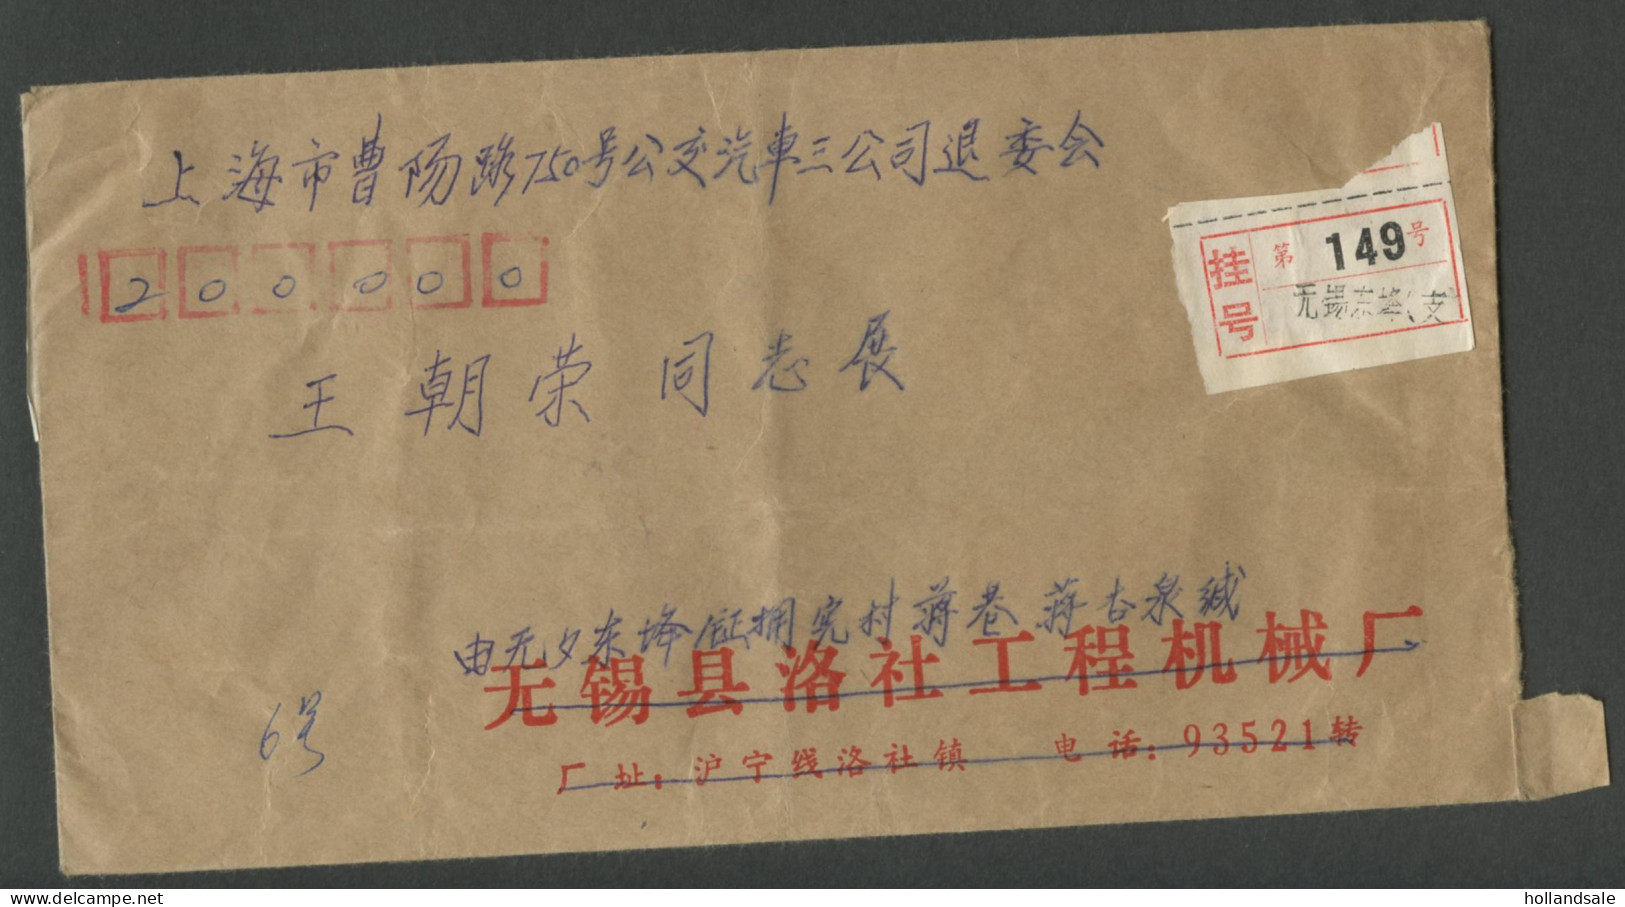 上海市曹杨路750号公交汽車三公司退委会
200000
王朝荣同志展
挂号
第149号
无锡东
由无夕东垟 村蒋巷 蒋 泉缄
无锡县洛社工程机械厂
厂址：沪宁线洛社镇 电话：93521转
6号
hollandsale